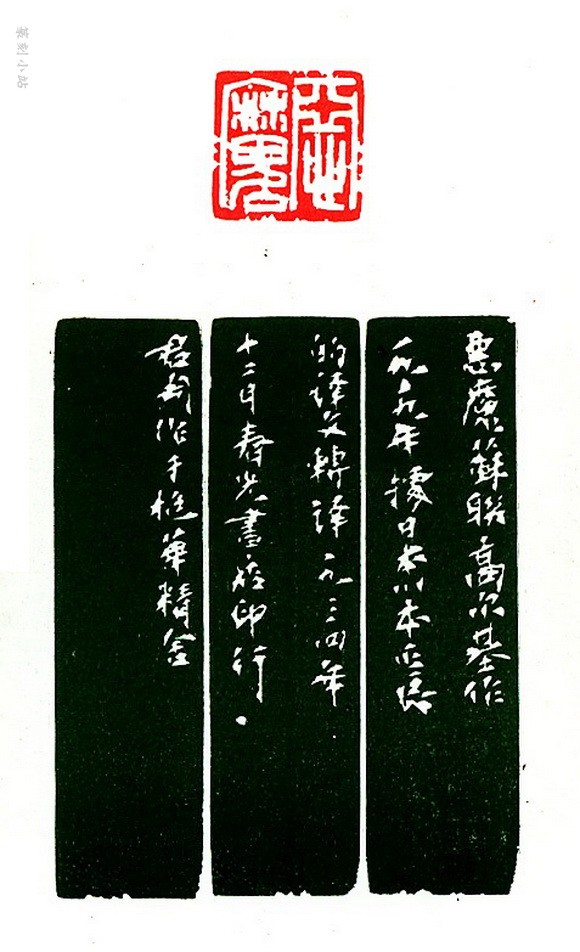 惡魔
惡魔蘇聯高尔基作
一九二九年據日本川本正良
的譯文轉譯一九三四年
十二月春光書店印行。
君匋作于抱華精舍
篆刻小站